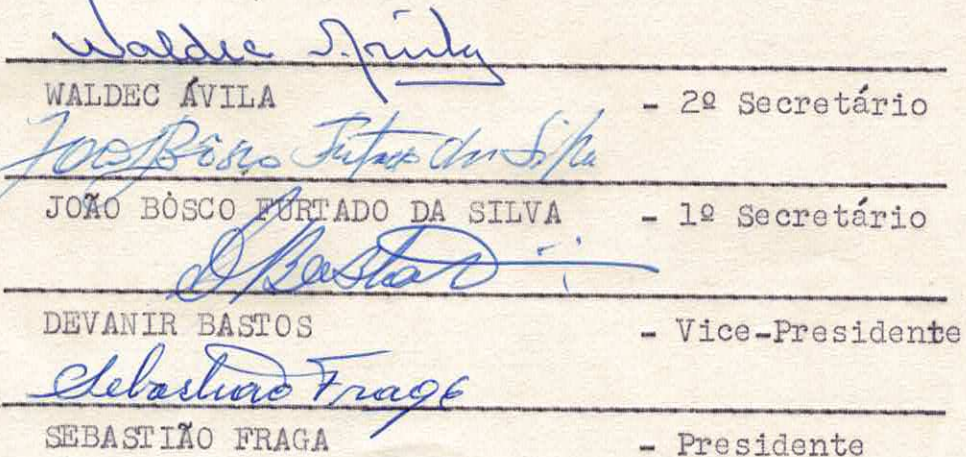 Waldec Ávila
WALDEC ÁVILA - 2º Secretário
João Bôsco Furtado da Silva
JOÃO BÒSCO FURTADO DA SILVA - 1º Secretário
DBastos
DEVANIR BASTOS - Vice-Presidente
Sebastião Fraga
SEBASTIÃO FRAGA - Presidente